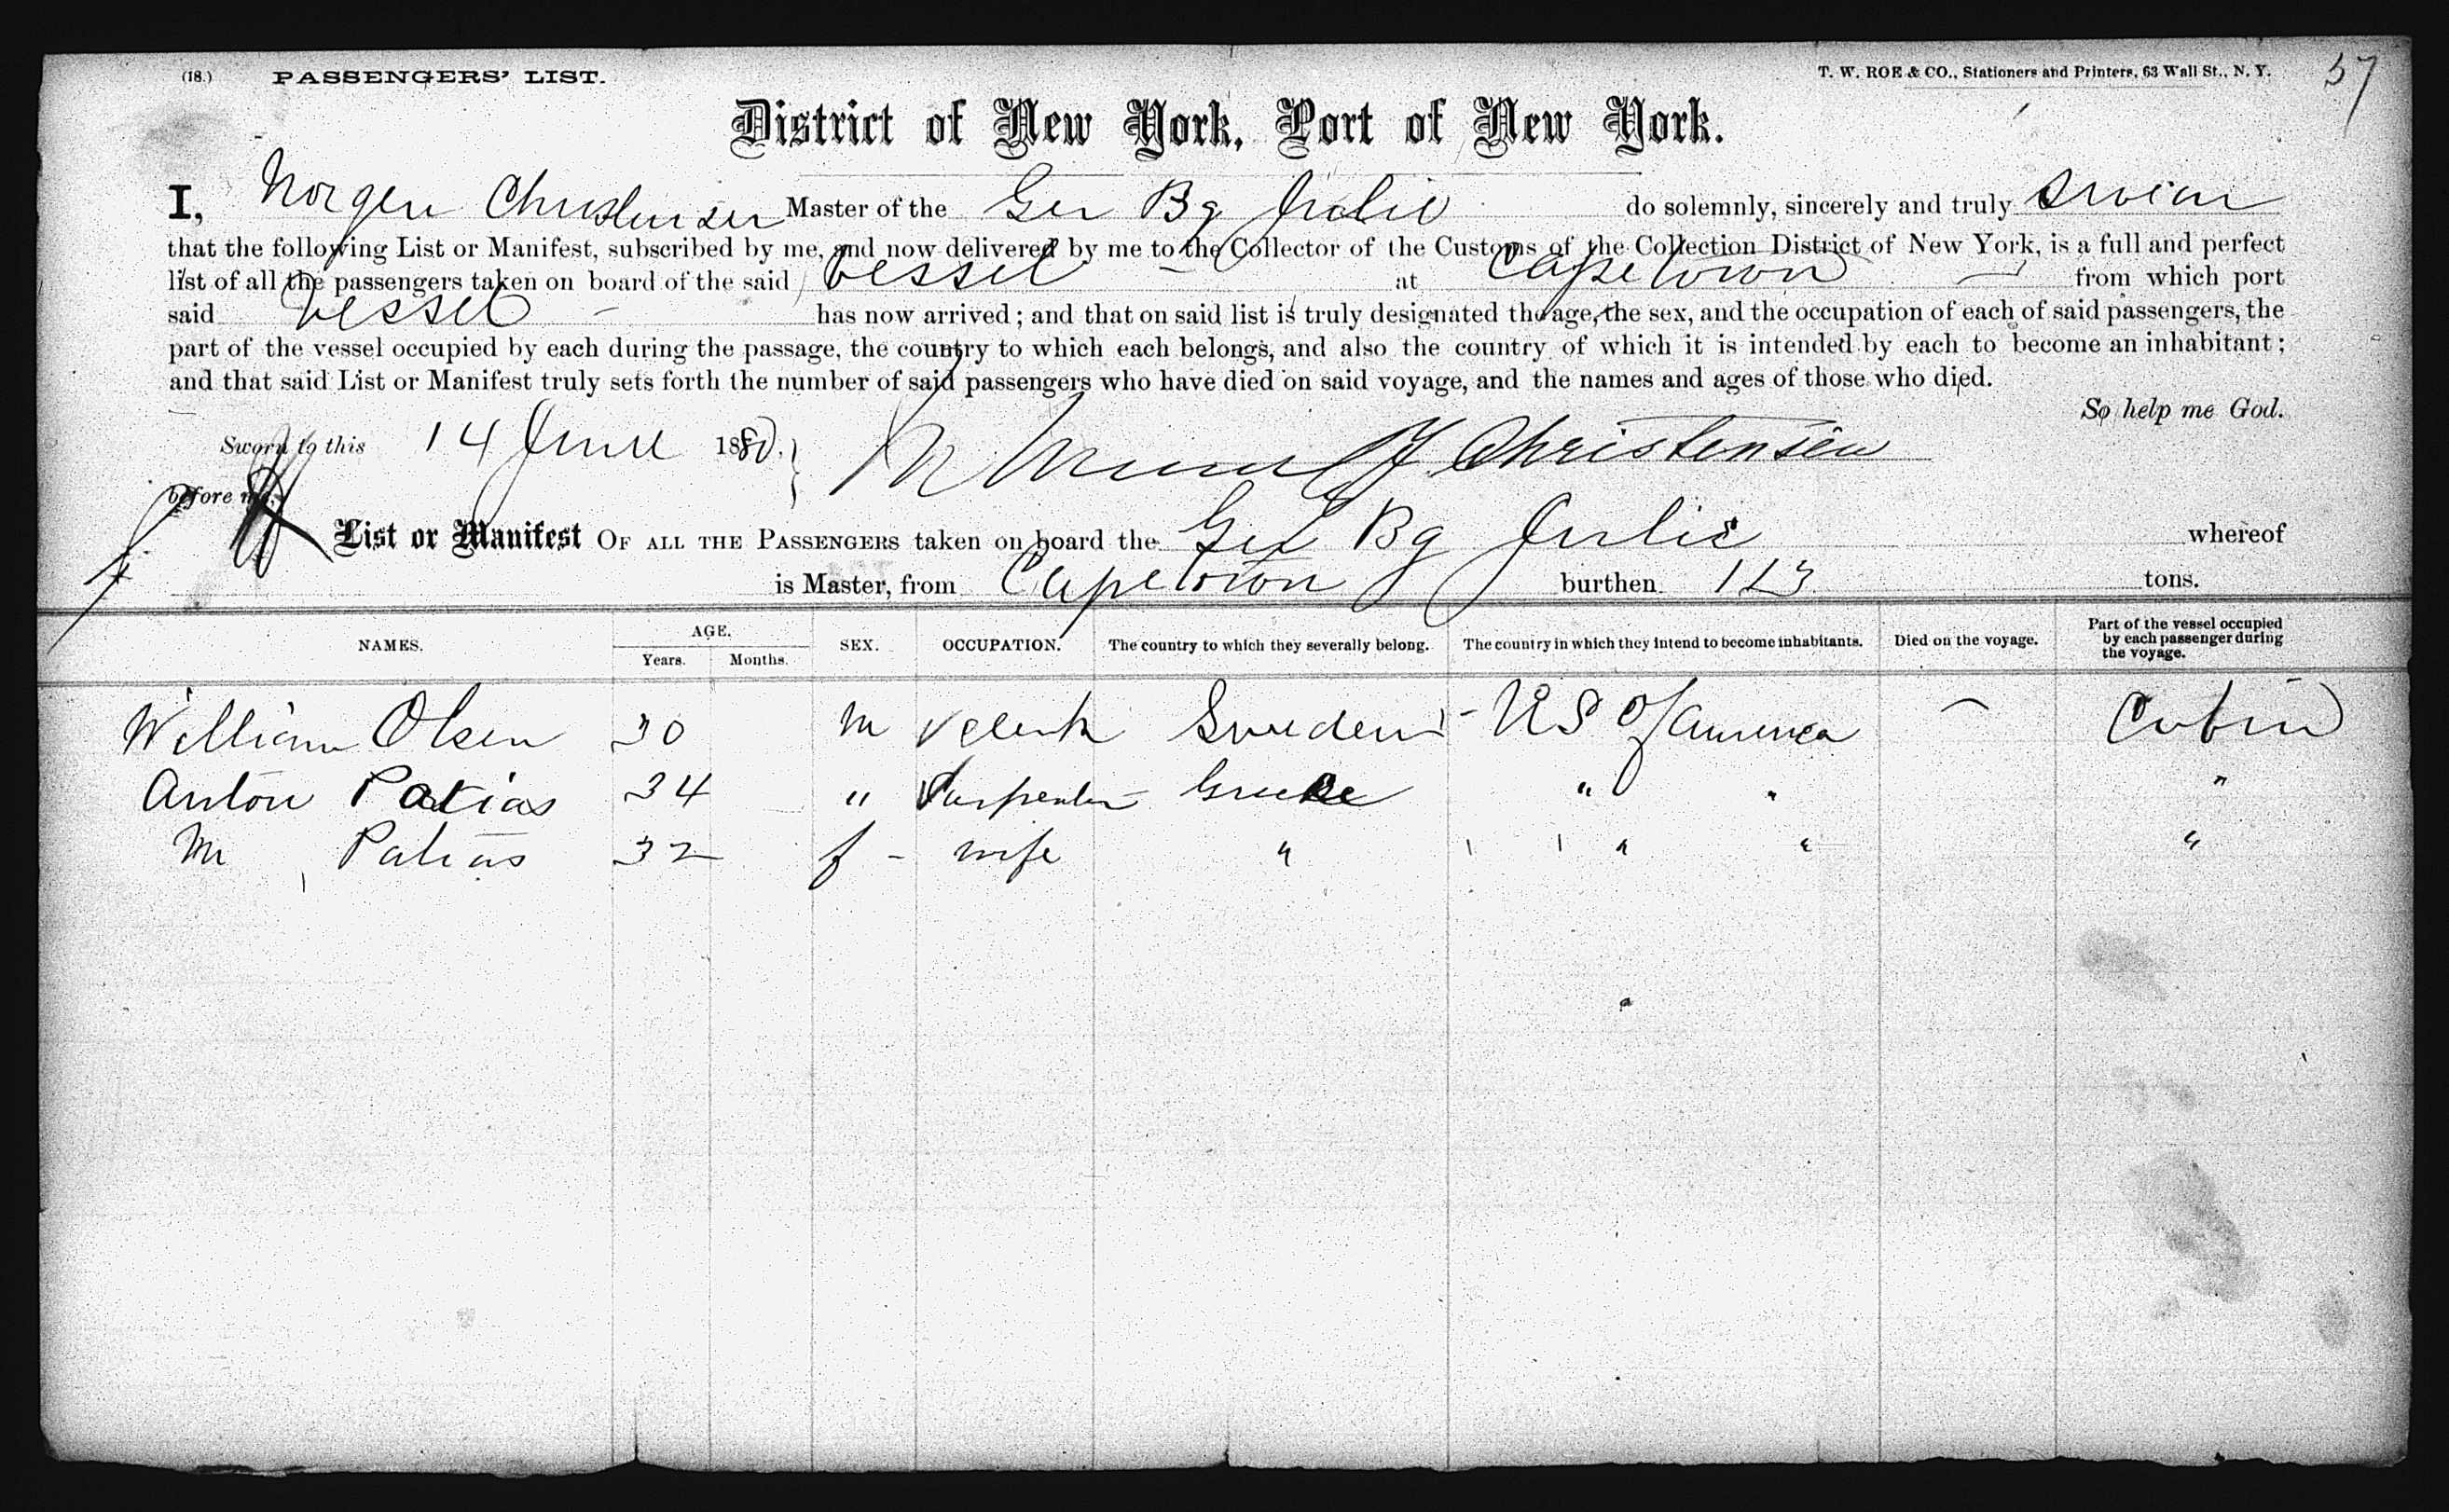 (18.) PASSENGERS' LIST. T. W. ROE & CO., Stationers and Printers, 63 Wall St., N. Y. 57
District of New York, Port of New York.
I, Morgen Christensen Master of the Ger Bg Julie do solemnly, sincerely and truly swear
that the following List or Manifest, subscribed by me, and now delivered by me to the Collector of the Customs of the Collection District of New York, is a full and perfect
list of all the passengers taken on board of the said vessel at Capetown from which port
said vessel has now arrived; and that on said list is truly designated the age, the sex, and the occupation of each of said passengers, the
part of the vessel occupied by each during the passage, the country to which each belongs, and also the country of which it is intended by each to become an inhabitant;
and that said List or Manifest truly sets forth the number of said passengers who have died on said voyage, and the names and ages of those who died.
So help me God.
Sworn to this 14 June 1880. Christensen
before me,
List or Manifest OF ALL THE PASSENGERS taken on board the Ger Bg Julie whereof
is Master, from Capetown burthen 123 tons.
NAMES. AGE. Years. Months. SEX. OCCUPATION. The country to which they severally belong. The country in which they intend to become inhabitants. Died on the voyage. Part of the vessel occupied by each passenger during the voyage.
William Olsen 30 M Clerk Sweden US of America — Cabin
Anton Patias 34 " Carpenter Greece " " "
M Patias 32 f - wife " " " "